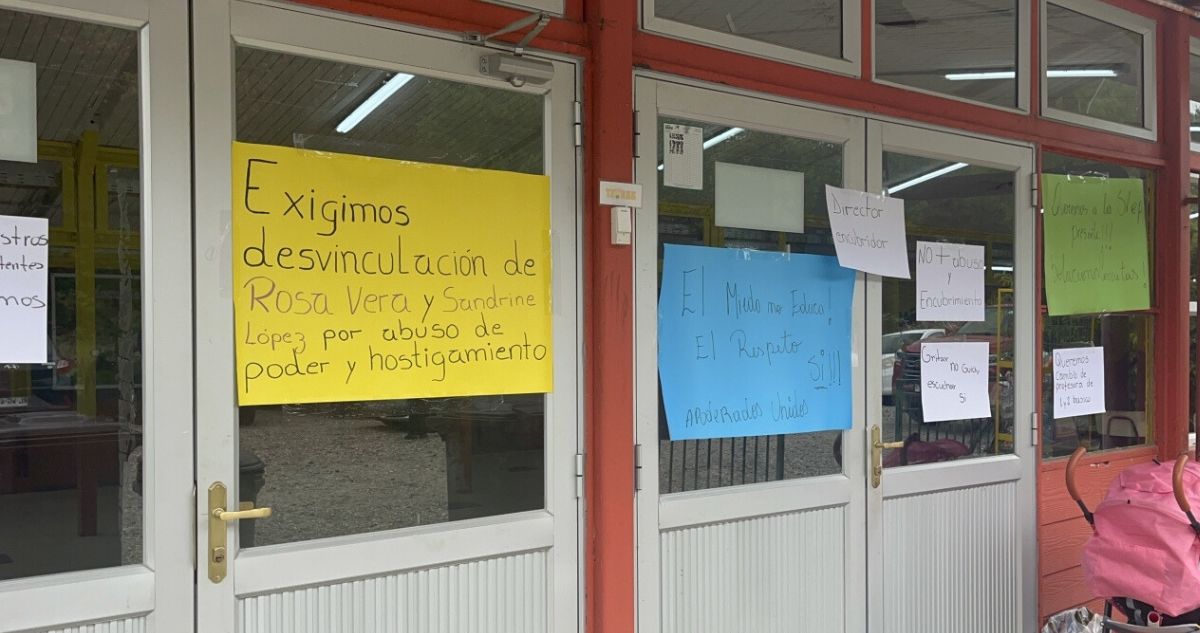 stros
tentes
mos
Exigimos
desvinculación de
Rosa Vera y Sandrine
López por abuso de
poder y hostigamiento
El Miedo no Educa!
El Respeto
Si!!!
Apoderados Unidos
Director
encubridor
NO + abuso
y
Encubrimiento
Gritar no Guia,
escuchar
Si
Queremos a la Slep
presente!!!
Queremos
cambio de
profesora de
1 y 2 básico